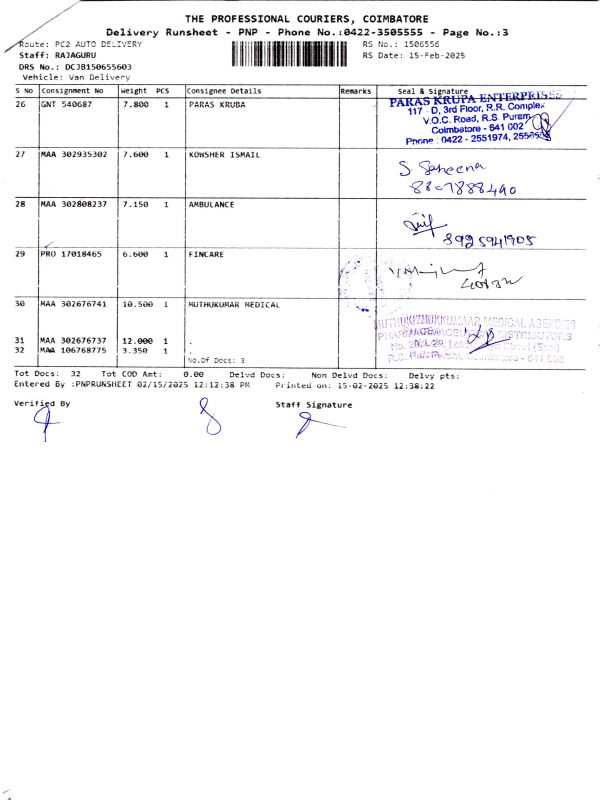 THE PROFESSIONAL COURIERS, COIMBATORE
Delivery Runsheet - PNP - Phone No.:0422-3505555 - Page No.:3
Route: PC2 AUTO DELIVERY RS No.: 1506556
Staff: RAJAGURU RS Date: 15-Feb-2025
DRS No.: DCJB150655603
Vehicle: Van Delivery
S No Consignment No Weight PCS Consignee Details Remarks Seal & Signature
26 GNT 540687 7.800 1 PARAS KRUBA
PARAS KRUPA ENTERPRISES
117 - D, 3rd Floor, R.R. Complex
V.O.C. Road, R.S. Puram
Coimbatore - 641 002
Phone : 0422 - 2551974,
27 MAA 302935302 7.600 1 KOWSHER ISMAIL
S. Saheena
8807888490
28 MAA 302808237 7.150 1 AMBULANCE
8925941905
29 PRO 17018465 6.600 1 FINCARE
30 MAA 302676741 10.500 1 MUTHUKUMAR MEDICAL
MUTHUKUTHUKKUMAAR MEDICAL AGENCIES
DISTRIBUTORS
Coimbatore - 641 002
31 MAA 302676737 12.000 1 .
32 MAA 106768775 3.350 1 .
No.Of Docs: 3
Tot Docs: 32 Tot COD Amt: 0.00 Delvd Docs: Non Delvd Docs: Delvy pts:
Entered By :PNPRUNSHEET 02/15/2025 12:12:38 PM Printed on: 15-02-2025 12:38:22
Verified By Staff Signature